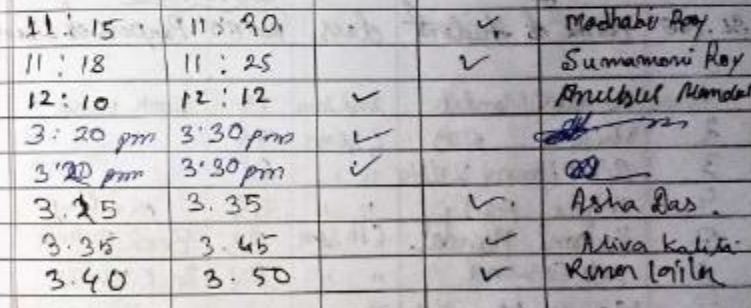 11:15 11:20 ✓ Madhabi Roy
11:18 11:25 ✓ Sumamoni Roy
12:10 12:12 ✓ Mondal
3:20 pm 3:30 pm ✓
3:20 pm 3:30 pm ✓
3.25 3.35 ✓ Asha Das.
3.35 3.45 ✓ Kalita
3.40 3.50 ✓